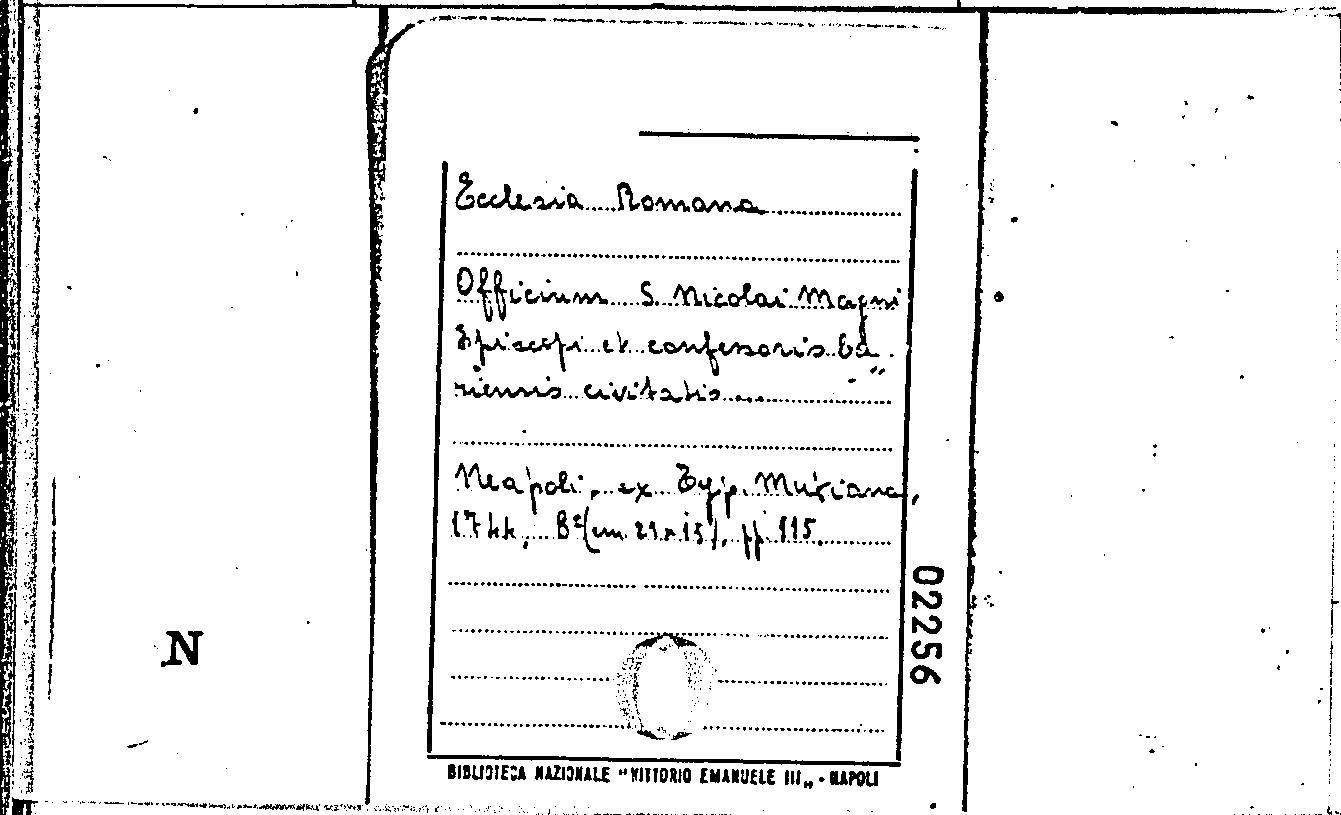 Ecclesia Romana
Officium S. Nicolai Magni
Episcopi et confessoris Ba
riensis civitatis...
Neapoli, ex Typ. Muziana,
17kk, 8º (cm 21x15), pp. 115.
02256
N
BIBLIOTECA NAZIONALE "VITTORIO EMANUELE III„ - NAPOLI